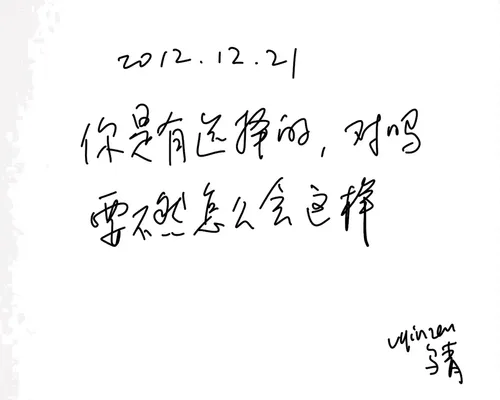 2012.12.21
你是有选择的，对吗
要不然怎么会这样
乌青